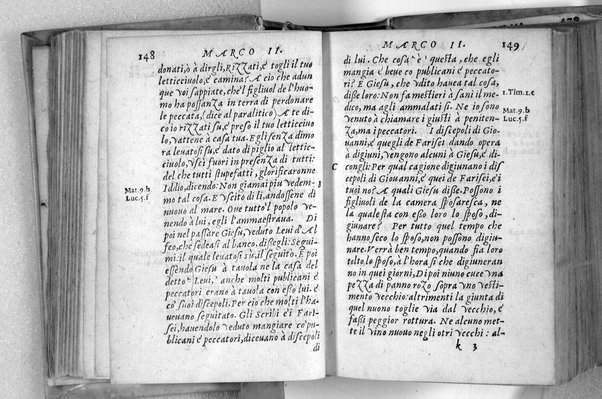 148 MARCO II.
donati, ò à dirgli, Rizzati, e togli il tuo
letticciuolo, e camina? A cio che adun
que voi sappiate, che'l figliuol de l'huo
mo ha possanza in terra di perdonare
le peccata, (dice al paralitico) A te di-
co io rizzati su, e preso il tuo letticciuo
lo, vattene à casa tua. Egli senza dimo
ra levatosi su, e dato di piglio al lettic-
ciuolo, vsci fuori in presenza di tutti:
del che tutti stupefatti, glorificaronne
Iddio, dicendo: Non giamai piu vedem-
mo tal cosa. E vscito di lì, andossene di
nuouo al mare. One tutto'l popolo ve-
nendo à lui, egli l'ammaestraua. Di
poi nel passare Giesu, veduto Leui d'Al
feo, che sedeasi al banco, dissegli: Segui-
mi: il quale leuatosi su, il seguitò. E poi
essendo Giesu à tauola ne la casa del
detto Leui, anche molti publicani e
peccatori erano à tauola con esso lui, e
co' suoi discepoli. Per cio che molti l'ha-
ueuano seguitato. Gli Scribi e i Fari-
sei, hauendolo veduto mangiare co' pu-
blicani e peccatori, diceuano à discepoli
di
Mat. 9. b
Luc. 5. f
MARCO II. 149
di lui. Che cosa è questa, che egli
mangia e beue co publicani e peccato-
ri? E Giesu, che vdito hauea tal cosa,
disse loro: Non fa mestieri à sani il me-
dico, ma agli ammalati si. Ne io sono
venuto à chiamare i giusti à peniten-
za, ma i peccatori. I discepoli di Gio-
uanni, e quegli de Farisei dando opera
à digiuni, vengono alcuni à Giesu, e di-
congli: Per qual cagione digiunano i di
scepoli di Giouanni, e quei de Farisei, e i
tuoi no? A quali Giesu disse. Possono i
figliuoli de la camera sposaresca, ne
la quale sta con esso loro lo sposo, di-
giunare? Per tutto quel tempo che
hanno seco lo sposo, non possono digiu-
nare. Verrà ben tempo, quando fia loro
tolto lo sposo, à l'hora si che digiuneran
no in quei giorni. Di poi niuno cuce vna
pezza di panno rozo sopra vno vesti-
mento vecchio: altrimenti la giunta di
quel nuouo toglie via dal vecchio, e
fassi peggior rottura. Ne alcuno met-
te il vino nuouo negli otri vecchi: al-
k 3
1. Tim. 1. c
Mat. 9. b
Luc. 5. f
C